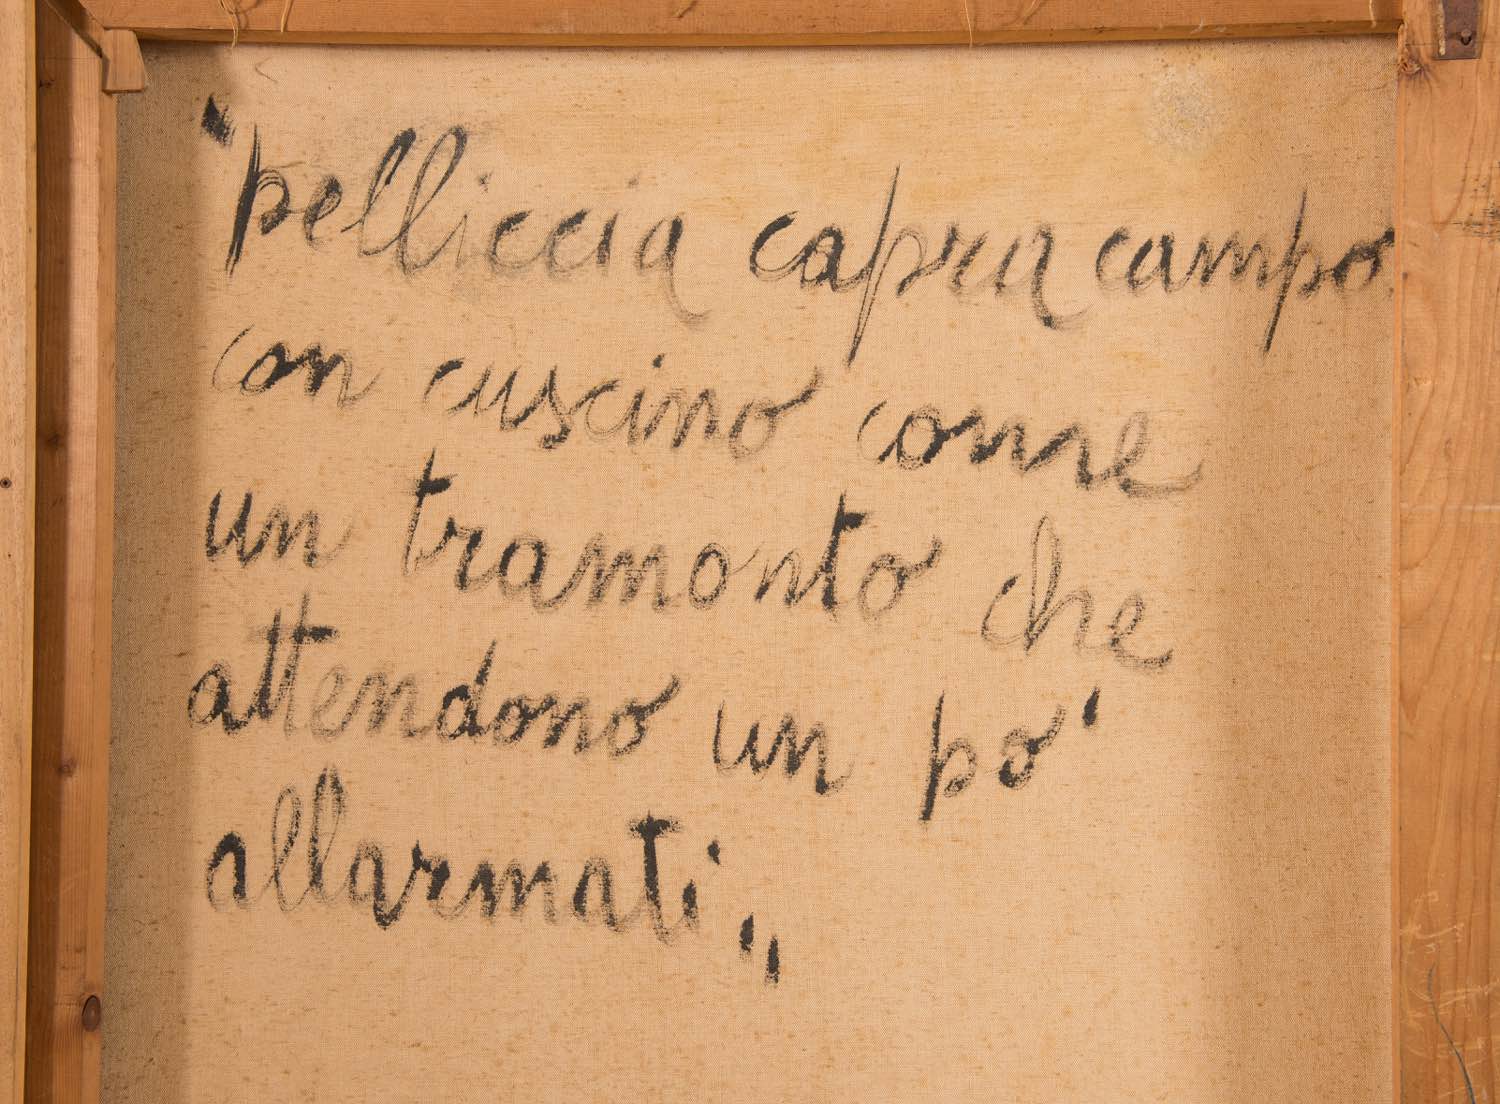 "pelliccia capra campo
con cuscino come
un tramonto che
attendono un po'
allarmati"